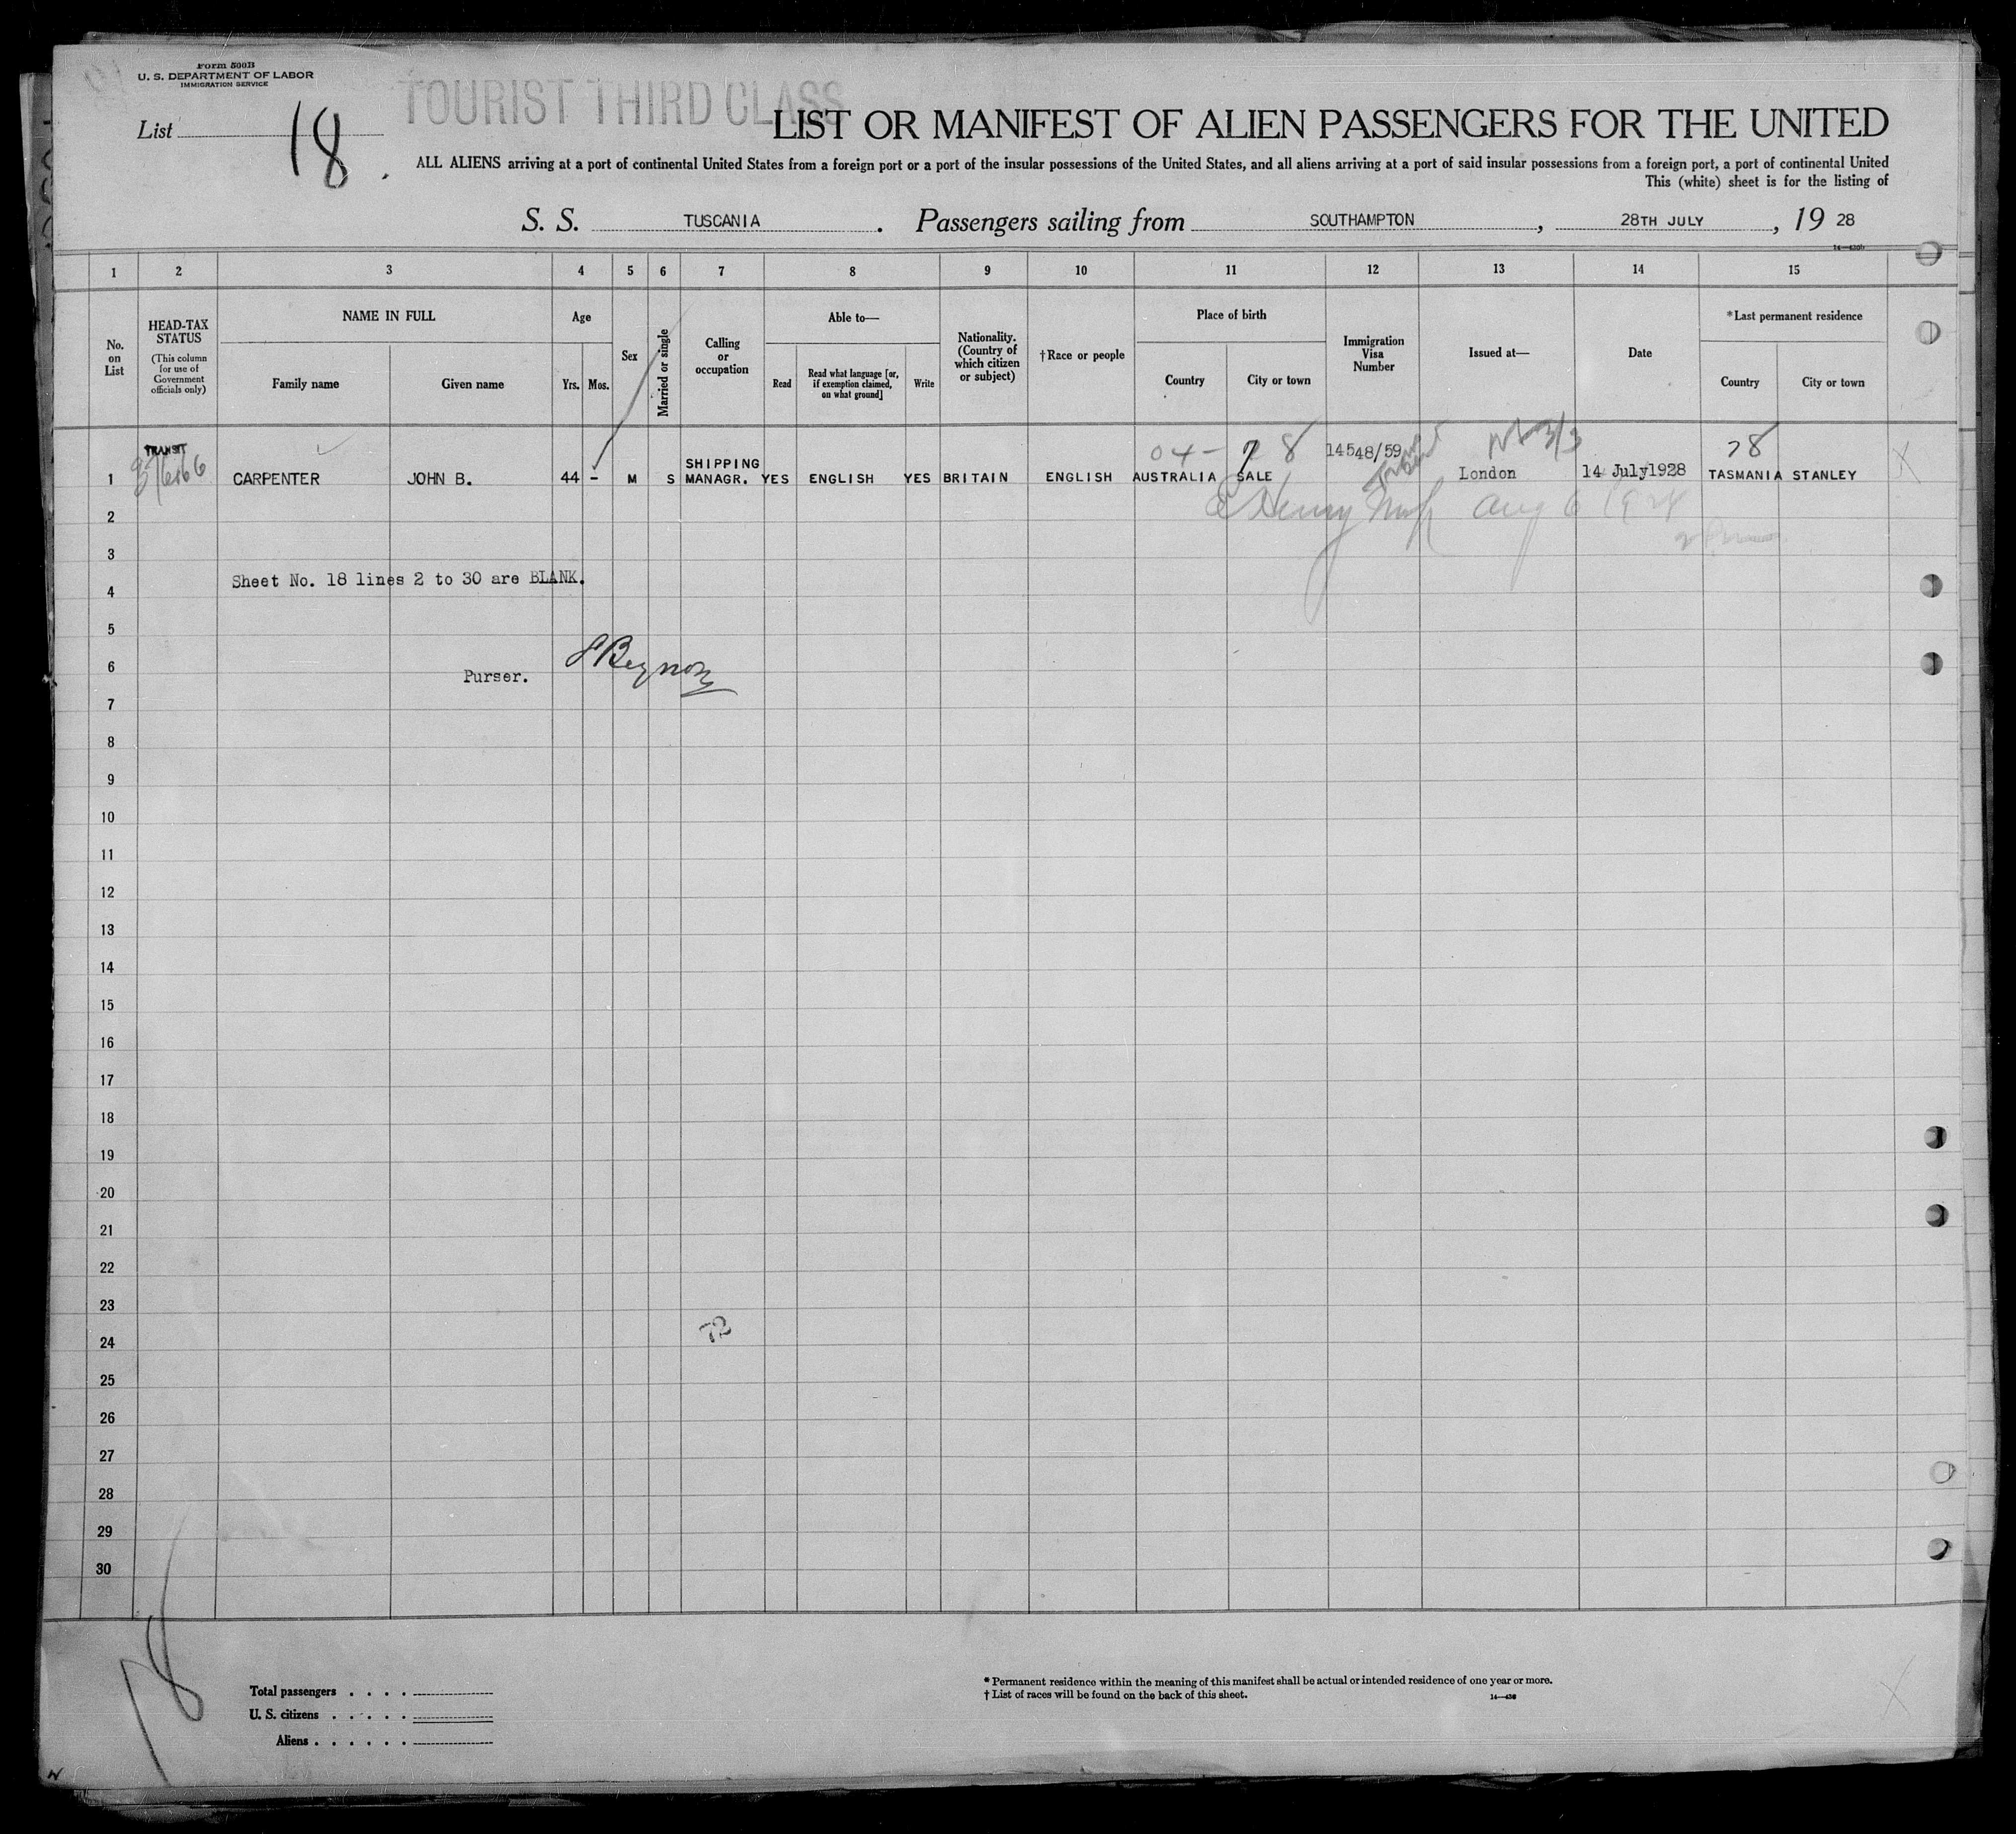 Form 500B
U. S. DEPARTMENT OF LABOR
IMMIGRATION SERVICE
TOURIST THIRD CLASS
List 18
LIST OR MANIFEST OF ALIEN PASSENGERS FOR THE UNITED
ALL ALIENS arriving at a port of continental United States from a foreign port or a port of the insular possessions of the United States, and all aliens arriving at a port of said insular possessions from a foreign port, a port of continental United
This (white) sheet is for the listing of
S. S. TUSCANIA . Passengers sailing from SOUTHAMPTON , 28TH JULY , 19 28
1 2 3 4 5 6 7 8 9 10 11 12 13 14 15
No. on List
HEAD-TAX STATUS
(This column for use of Government officials only)
NAME IN FULL
Family name
Given name
Age
Yrs. Mos.
Sex
Married or single
Calling or occupation
Able to—
Read
Read what language [or, if exemption claimed, on what ground]
Write
Nationality. (Country of which citizen or subject)
†Race or people
Place of birth
Country
City or town
Immigration Visa Number
Issued at—
Date
*Last permanent residence
Country
City or town
TRANSIT
04 - 78
78
1 CARPENTER JOHN B. 44 - M S SHIPPING MANAGR. YES ENGLISH YES BRITAIN ENGLISH AUSTRALIA SALE 14548/59 London 14 July1928 TASMANIA STANLEY
Aug 6
2
3
Sheet No. 18 lines 2 to 30 are BLANK.
4
5
6
Purser.
7
8
9
10
11
12
13
14
15
16
17
18
19
20
21
22
23
24
25
26
27
28
29
30
18
Total passengers . . . .
U. S. citizens . . . . .
Aliens . . . . . .
* Permanent residence within the meaning of this manifest shall be actual or intended residence of one year or more.
† List of races will be found on the back of this sheet.